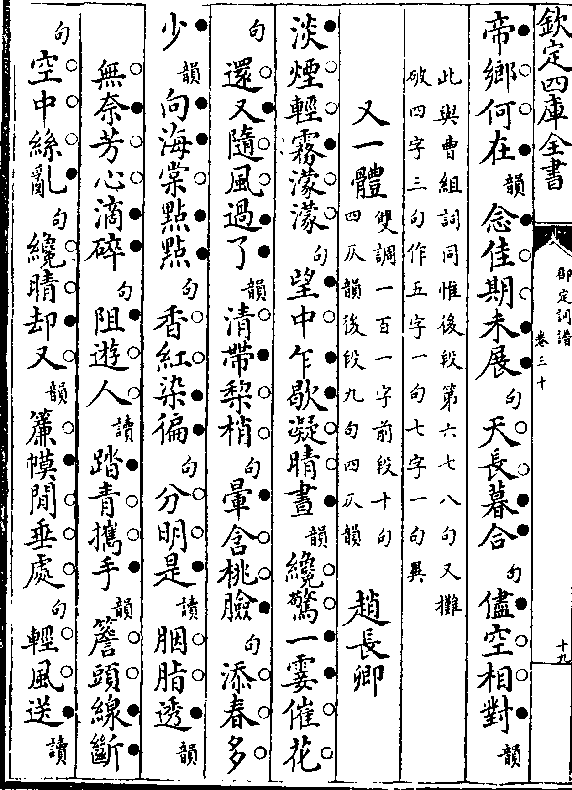 欽定四庫全書
御定詞譜
卷三十
十九
帝鄉何在韻念佳期未展句天長暮合句儘空相對韻
此與曹組詞同惟後段第六七八句又攤
破四字三句作五字一句七字一句異
又一體
雙調一百一字前段十句
四仄韻後段九句四仄韻
趙長卿
淡煙輕霧濛濛句望中乍歇凝晴晝韻纔驚一霎催花
句還又隨風過了韻清帶梨梢句暈含桃臉句添春多
少韻向海棠點點句香紅染徧句分明是讀胭脂透韻
無奈芳心滴碎句阻遊人讀踏青攜手韻簷頭線斷
句空中絲亂句纔晴却又韻簾幙閒垂處句輕風送讀